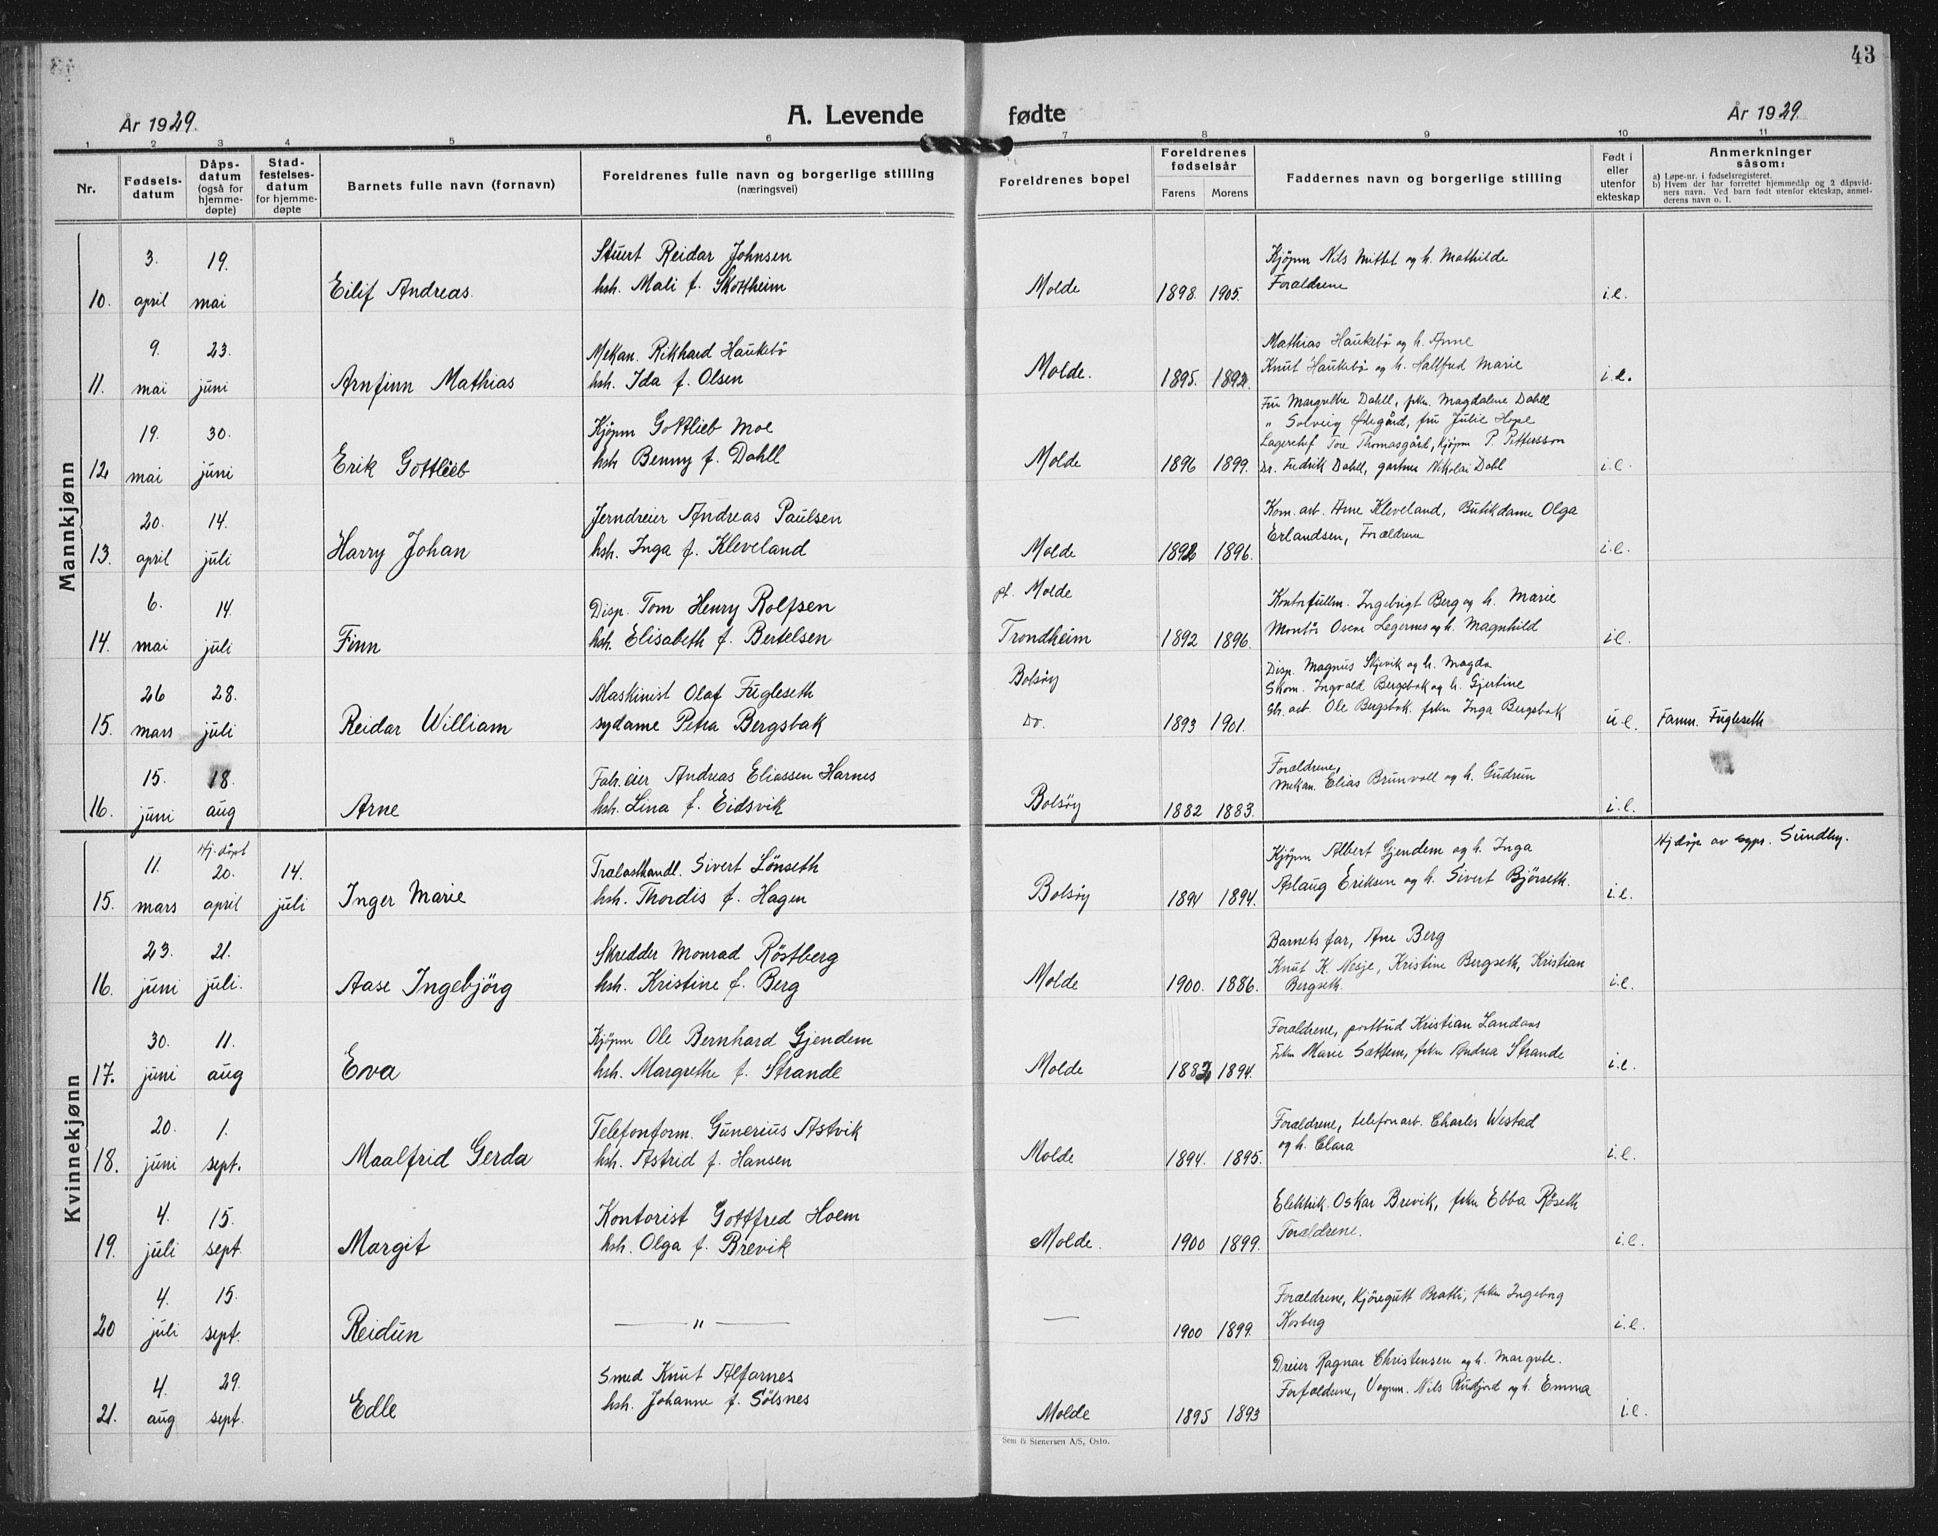 43
År 1929.
A. Levende fødte
År 1929.
1 2 3 4 5 6 7 8 9 10 11
Nr.
Fødselsdatum
Dåpsdatum (også for hjemmedøpte)
Stadfestelsesdatum for hjemmedøpte
Barnets fulle navn (fornavn)
Foreldrenes fulle navn og borgerlige stilling (næringsvei)
Foreldrenes bopel
Foreldrenes fødselsår
Farens Morens
Faddernes navn og borgerlige stilling
Født i eller utenfor ekteskap
Anmerkninger såsom:
a) Løpe-nr. i fødselsregisteret.
b) Hvem der har forrettet hjemmedåp og 2 dåpsvidners navn. Ved barn født utenfor ekteskap, anmelderens navn o. l.
Mannkjønn
10. 3. april 19. mai Eilif Andreas.
Stuert Reidar Johnsen
hsh. Mali f. Skottheim
Molde 1898. 1905.
Kjøpm Nils Mittet og h. Mathilde
Forældrene
i.e.
11. 9. mai 23. juni Arnfinn Mathias
Mekan. Rikhard Haukebö
hsh. Ida f. Olsen
Molde. 1895. 1892.
Mathias Haukebö og h. Anne
Knut Haukebö og h. Hallfrid Marie
i.e.
12 19. mai 30. juni Erik Gottlieb
Kjöpm Gottlieb Moe
hsh Benny f. Dahll
Molde 1896 1899.
Fru Margrethe Dahll, frkn. Magdalene Dahll
" Solveig Ødegård, fru Julie Hope
Lagerchef Tore Thomasgård, Kjøpm P. Pettersson
Dr. Fredrik Dahll, gartner Nikolai Dahl
i.e.
13. 20. april 14. juli Harry Johan
Jerndreier Andreas Paulsen
hsh. Inga f. Kleveland
Molde 1892 1896.
Kom. arb. Arne Kleveland, Butikdame Olga
Erlandsen, Forældrene
i.e.
14. 6. mai 14. juli Finn
Disp. Tom Henry Rolfsen
hsh. Elisabeth f. Bertelsen
pt. Molde
Trondheim 1892 1896.
Kontorfullm. Ingebrigt Berg og h. Marie
Montör Oscar Legernes og h. Magnhild
i.e.
15. 26 mars 28. juli Reidar William
Maskinist Olaf Fugleseth
sydame Petra Bergsbak
Bolsöy
Do. 1893 1901.
Disp. Magnus Skjevik og h. Magda
Skom. Ingvald Bergsbak og h. Gjertine
arb Ole Bergsbak. frkn Inga Bergsbak
u.e. Famn. Fugleseth
16. 15. juni 18. aug Arne
Fabr.eier Andreas Eliassen Harnes
hsh. Lina f. Eidsvik
Bolsöy 1882 1883.
Forældrene,
Mekan. Elias Brunvoll og h. Gudrun
i.e.
Kvinnekjønn
15. 11. mars Hj. döpt 20. april 14. juli Inger Marie
Trælasthandl. Sivert Lönseth
hsh. Thordis f. Hagen
Bolsöy 1894 1894.
Kjöpm Albert Gjendem og h. Inga
Aslaug Eriksen og h. Sivert Björseth.
i.e. Hj.döp av sgpr. Sundby.
16. 23. juni 21. juli. Aase Ingebjörg
Skredder Monrad Röstberg
hsh. Kristine f. Berg
Molde 1900. 1886.
Barnets far, Ane Berg
Knut K. Nesje, Kristine Bergseth, Kristian
Bergseth.
i.e.
17. 30. juni 11. aug Eva
Kjöpm Ole Bernhard Gjendem
hsh. Margrethe f. Strande
Molde 1894.
Forældrene, postbud Kristian Landaas
Frkn Marie Sættem, frkn Andrea Strande
i.e.
18. 20. juni 1. sept. Maalfrid Gerda
Telefonform. Gunerius Astvik
hsh. Astrid f. Hansen
Molde 1894. 1895.
Forældrene, telefonarb. Charles Westad
og h. Clara
i.e.
19. 4. juli 15. sept. Margit
Kontorist Gottfred Hoem
hsh. Olga f. Brevik
Molde. 1900 1899.
Elektrik. Oskar Brevik, frkn Ebba Røseth
Forældrene.
i.e.
20 4. juli 15. sept. Reidun
— " —
— 1900 1899.
Forældrene, Kjöregutt Bratli, frkn Ingeborg
Kosberg
i.e.
21. 4. aug 29. sept. Edle
Smed Knut Alfarnes
hsh. Johanne f. Sölsnes
Molde 1895 1893
Dreier Ragnar Christensen og h. Margrete.
Forfældrene, Vognm. Nils Rudjord og h. Emma
i.e.
Sem & Stenersen A/S, Oslo.